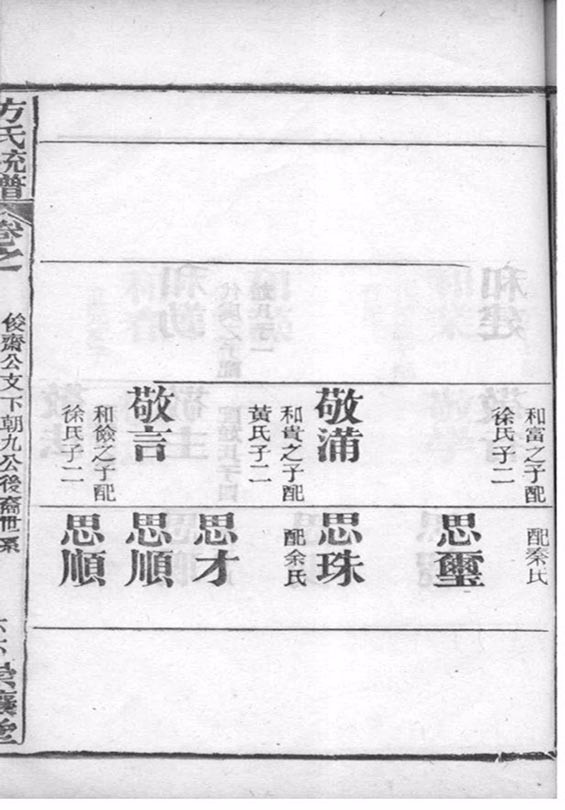 和富之子配
徐氏子二
敬滿
和貴之子配
黃氏子二
敬言
和儉之子配
徐氏子二
配秦氏
思璽
思珠
配余氏
思才
思順
思順
方氏統譜
卷之一
俊齋公支下朝九公後裔世系
六六